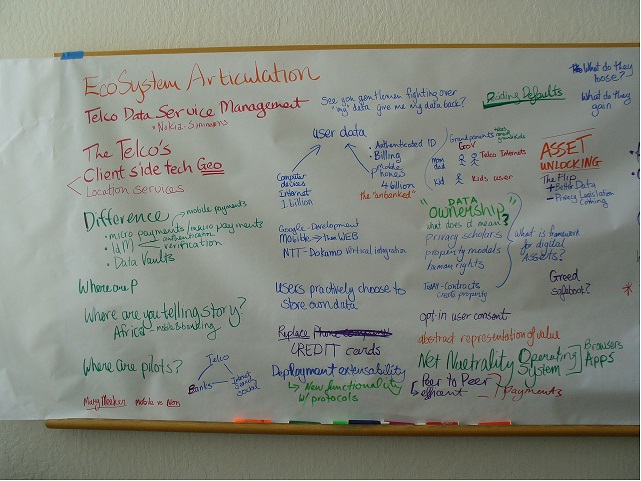 EcoSystem Articulation
Telco Data Service Management
• Nokia-Simmons
The Telco's
Client side tech Geo
Location services
Difference
mobile payments
• micro payments/macro payments
• IdM authentication
verification
• Data Vaults
Where are P
Where are you telling story?
Africa mobile & banking
Where are pilots?
Telco
Banks
Internet
social
Mary Meeker Mobile vs Non
See you gentlemen fighting over
"my data give me my data back?
user data
Computer
devices
Internet
1 billion
• Authenticated ID
• Billing
mobile
phones
4 billion
the "unbanked"
Google-Development
Mobile → then WEB
NTT-Dokamo vertical integration
users practively choose to
store own data
Replace
CREDIT cards
Deployment extensability
↳ New functionality
w/ protocols
Coding Defaults
Grand parents
Gov
mom
dad
Telco Internets
Kid
Kids user
"DATA
ownership"
what does it mean?
privacy scholars
property models
human rights
TODAY-Contracts
create property
what is framework
for digital
ASSETS?
opt-in user consent
abstract representation of value
Net Nuetrality Operating
System
Browsers
Apps
Peer to Peer
efficent
payments
What do they
loose?
What do they
gain
ASSET
UNLOCKING
The Flip
+ Better Data
- Privacy Legislation
Coming
Greed